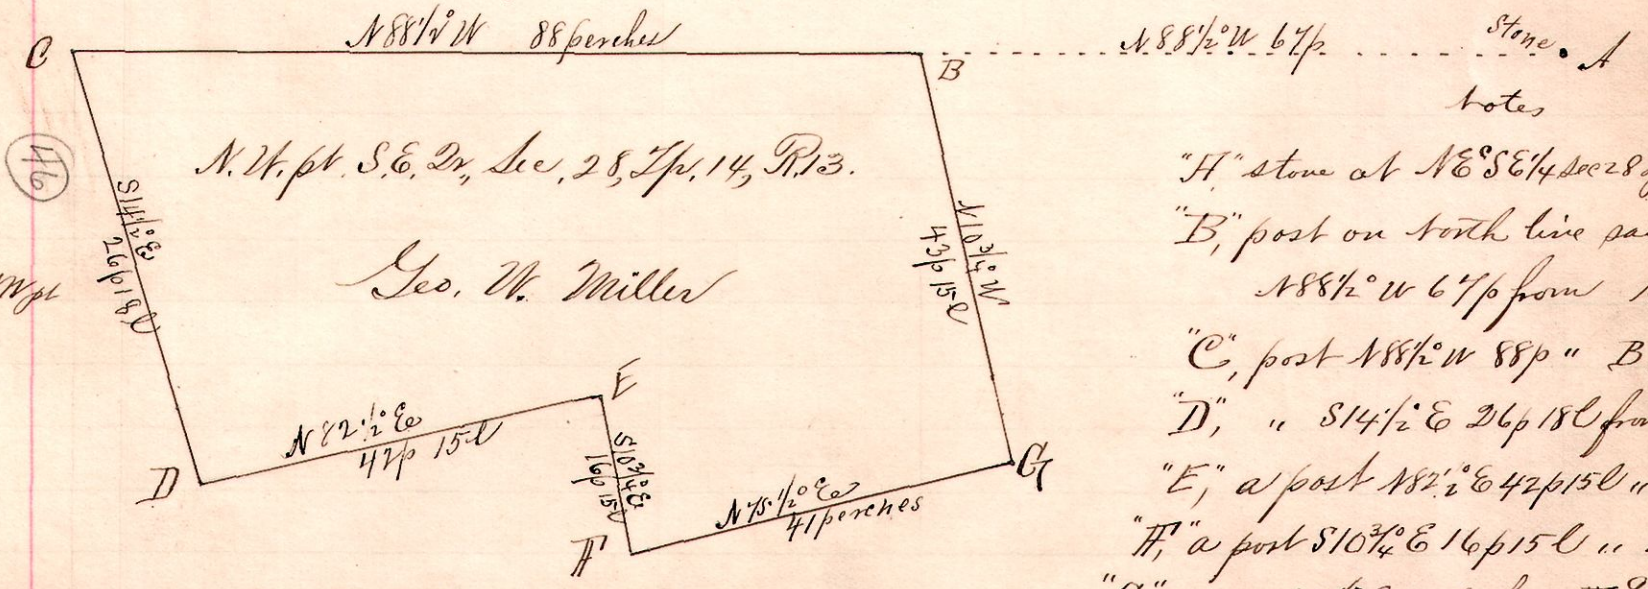 C
N 88 1/2° W 88 perches
B
N 88 1/2° W 67p
Stone
A
Notes
46
N.W. pt. S.E. Qr., Sec. 28, Tp. 14, R. 13.
Geo. W. Miller
S 14 1/2° E
26p 18l
N 10 3/4° W
43p 15l
W pt
D
N 82 1/2° E
42p 15l
E
S 10 3/4° E
16p 15l
F
N 75 1/2° E
41 perches
G
"A" stone at NEc SE 1/4 sec 28
"B", post on North line
N 88 1/2° W 67p from
"C", post N 88 1/2° W 88p " B
"D", " S 14 1/2 E 26p 18l
"E", a post N 82 1/2° E 42p 15l "
"F", a post S 10 3/4° E 16p 15l "